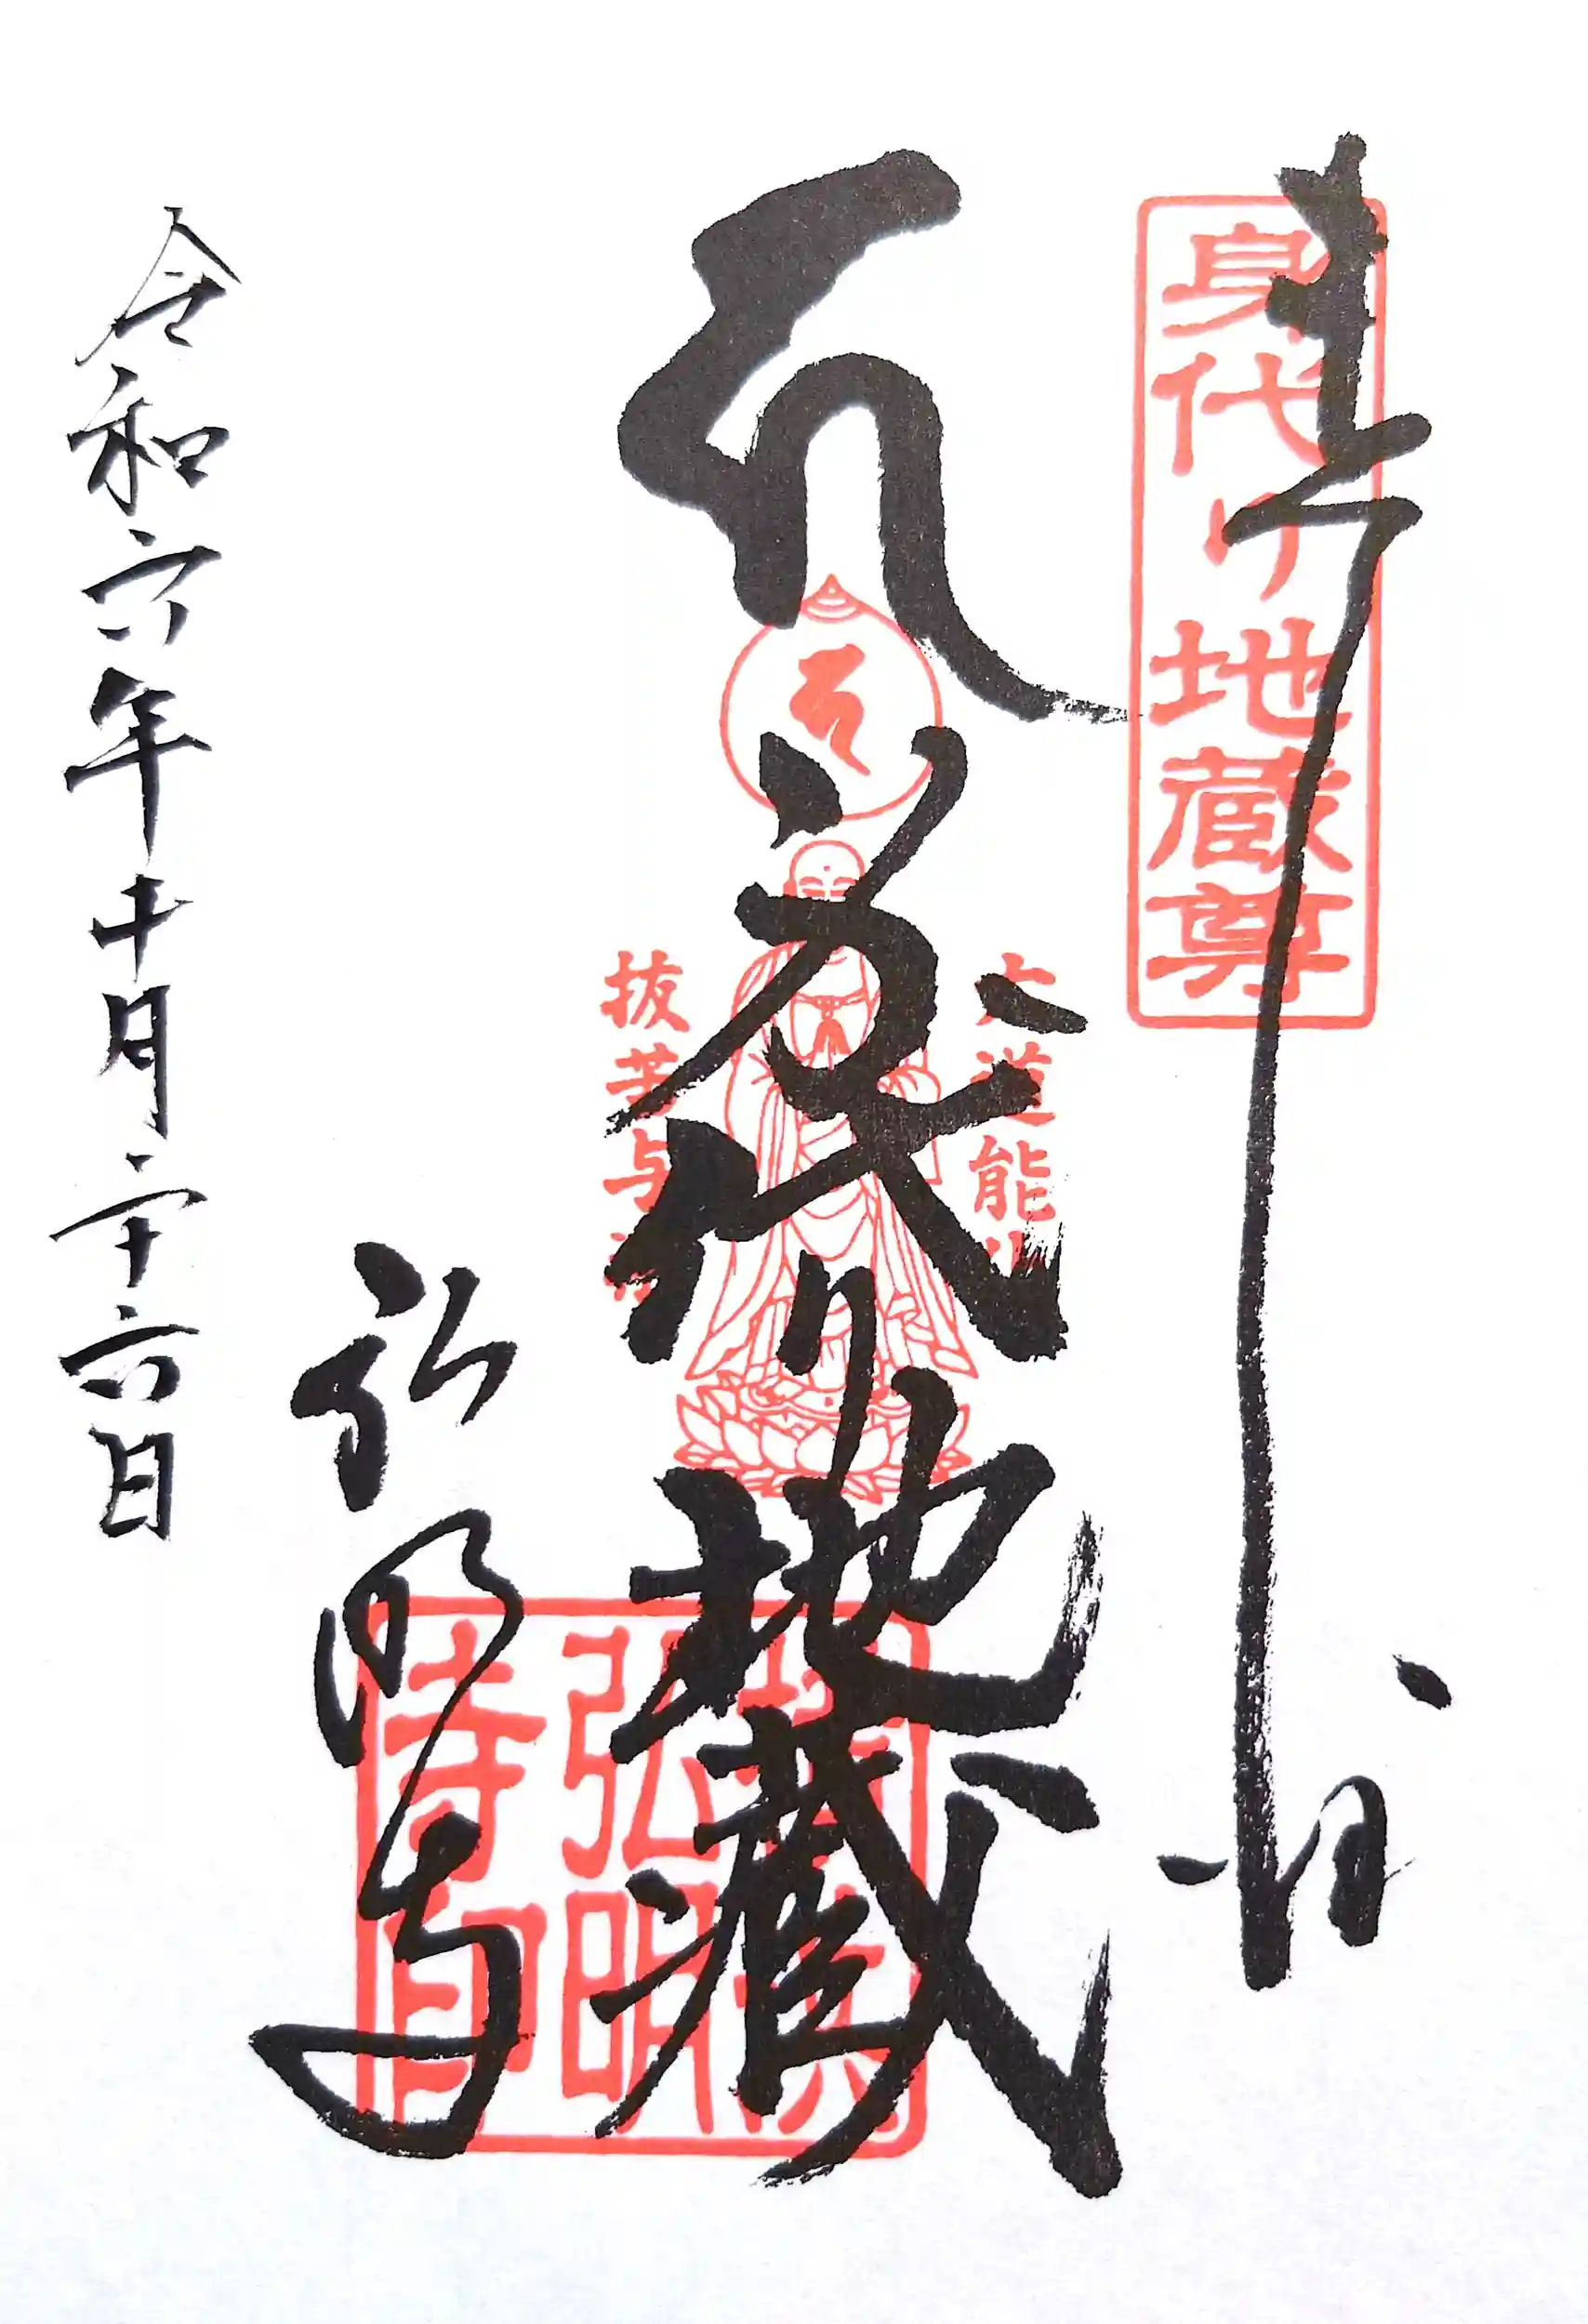 奉拝
身代り地蔵尊
身代り地蔵
大道能化
抜苦与楽
弘明寺
弘明寺印
令和六年十月二十六日